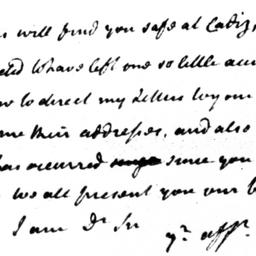 will find you safe at Cadiz,
to have left one so little acc
to direct my Letters to you
me their addresses, and also
has occurred since you
we all present you our b
I am Dr Sir
yr. affe.